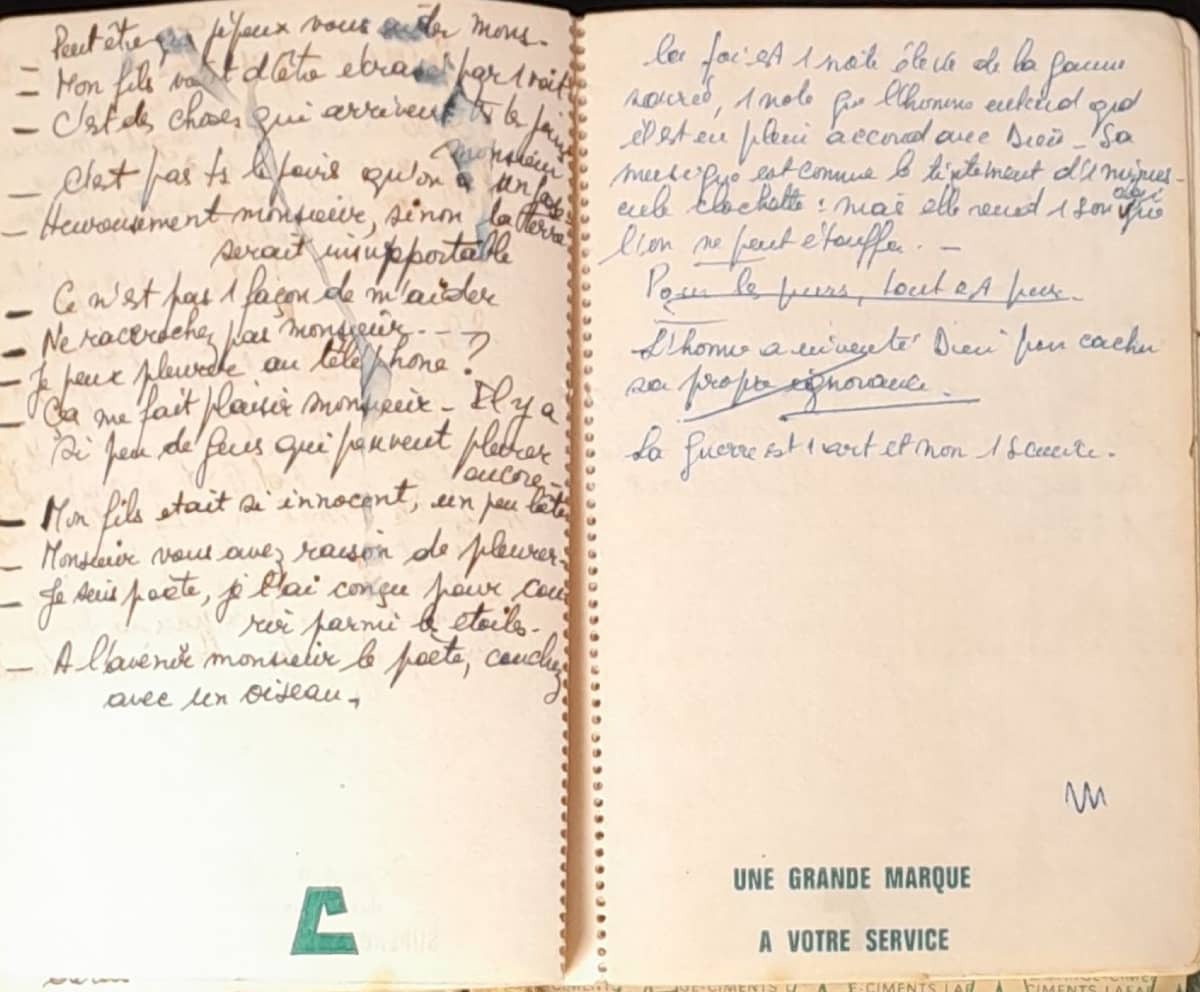 Peut être je peux vous aider mons-
– Mon fils vient d'être ecrasé par 1 voit
– C'est des choses qui arrivent ts les jours
monsieur
– C'est pas ts les jours qu'on a un fils
– Heureusement monsieur, sinon la terre
serait insupportable
– Ce n'est pas 1 façon de m'aider
– Ne raccrochez pas monsieur - - -
– Je peux pleurer au téléphone ?
– Ca me fait plaisir monsieur – Il y a
si peu de gens qui peuvent pleurer
encore –
– Mon fils etait si innocent, un peu bête
– Monsieur vous avez raison de pleurer –
– Je suis poète, je l'ai conçu pour cou
rir parmi les étoiles –
– A l'avenir monsieur le poète, couchez
avec un oiseau.
la foi est 1 note élevée de la gamme
sacrée, 1 note que l'homme entend qd
il est en plein accord avec Dieu – Sa
musique est comme le tintement d'1 minus-
cule clochette : mais elle rend 1 son clair que
l'on ne peut étouffer. –
Pour les purs, tout est pur.
L'homme a inventé Dieu pour cacher
sa propre ignorance.
La guerre est 1 art et non 1 science.
UNE GRANDE MARQUE
A VOTRE SERVICE